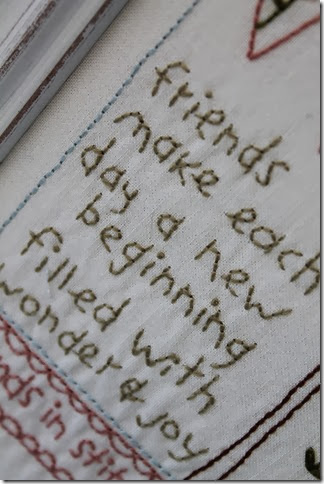 friends
make each
day a new
beginning
filled with
wonder & joy
nds in stit